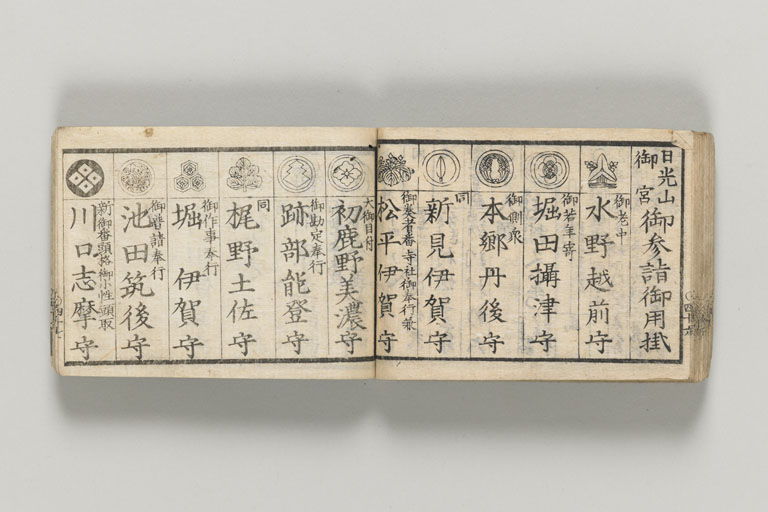 日光山
御宮
御参詣御用掛
御老中
水野越前守
御若年寄
堀田攝津守
御側衆
本郷丹後守
同
新見伊賀守
御奏者番 寺社御奉行兼
松平伊賀守
大御目付
初鹿野美濃守
御勘定奉行
跡部能登守
同
梶野土佐守
御作事奉行
堀伊賀守
御普請奉行
池田筑後守
新御番頭格 御小性頭取
川口志摩守